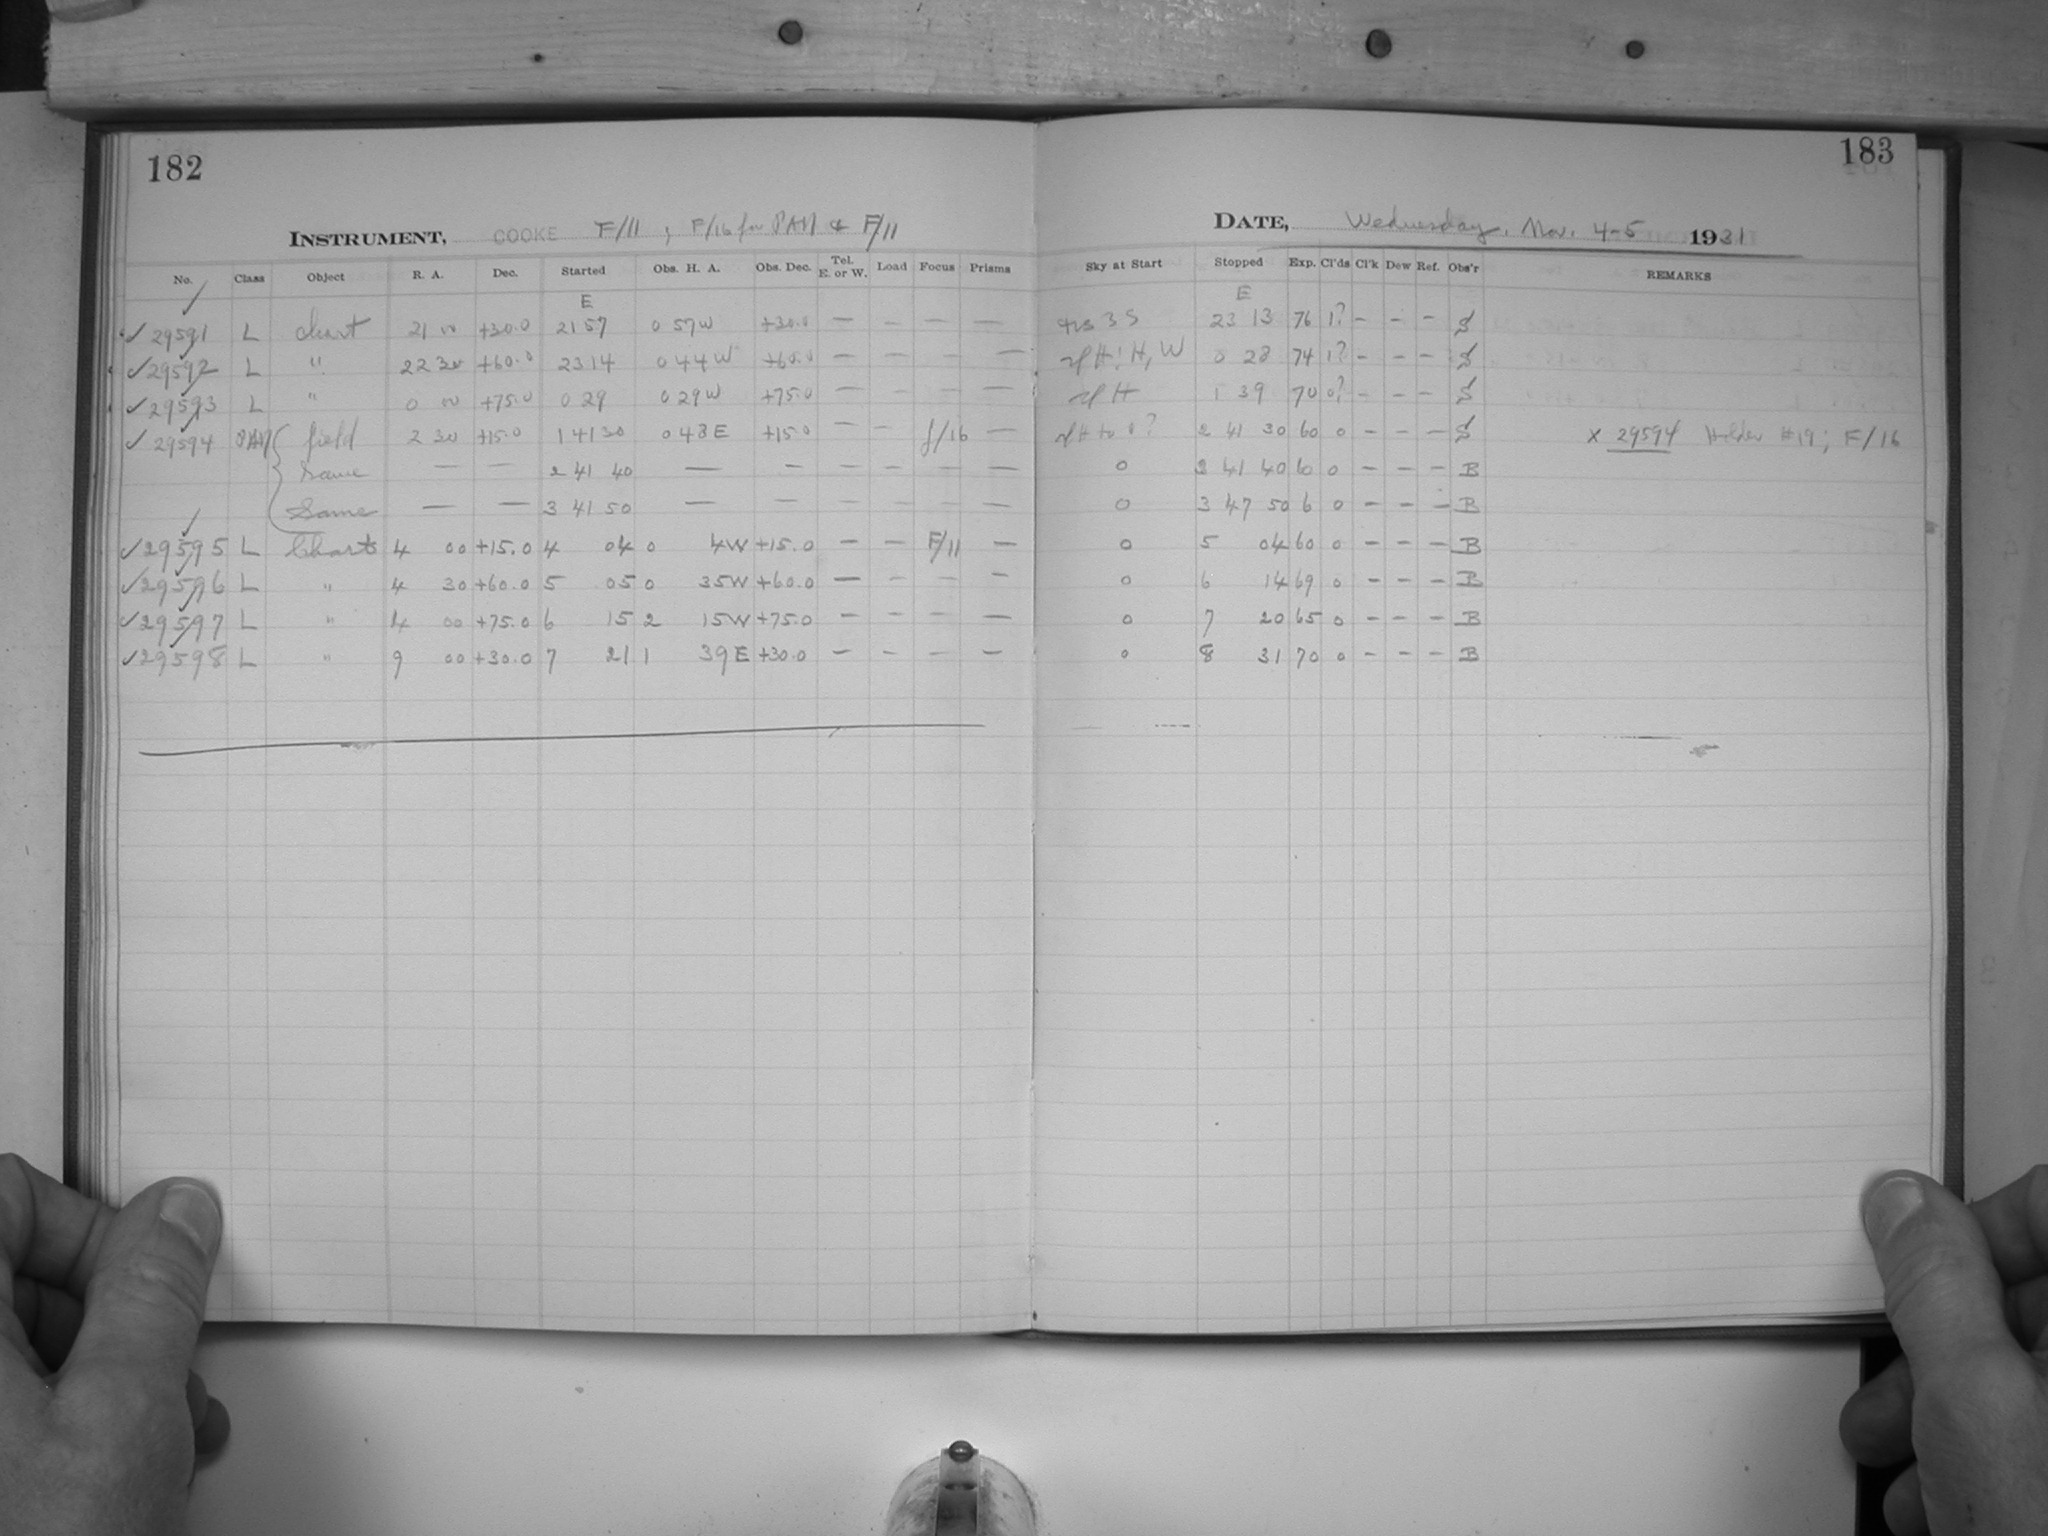 182
183
INSTRUMENT, COOKE F/11 ; F/16 for PAN & F/11
DATE, Wednesday, Nov. 4-5 1931
No. Class Object R. A. Dec. Started Obs. H. A. Obs. Dec. Tel. E. or W. Load Focus Prisms Sky at Start Stopped Exp. Cl'ds Cl'k Dew Ref. Obs'r REMARKS
E E
✓ 29591 L chart 21 00 +30.0 21 57 0 57W +30.0 — — — — 3S 23 13 76 1? — — — S
✓ 29592 L " 22 30 +60.0 23 14 0 44W +60.0 — — — — H! H, W 0 28 74 1? — — — S
✓ 29593 L " 0 00 +75.0 0 29 0 29W +75.0 — — — — H 1 39 70 0? — — — S
✓ 29594 PAN field 2 30 +15.0 1 41 30 0 48E +15.0 — — f/16 — H to 0? 2 41 30 60 0 — — — S x 29594 Holder #19; F/16
Same — — 2 41 40 — — — — — — 0 3 41 40 60 0 — — — B
Same — — 3 41 50 — — — — — — 0 3 47 50 6 0 — — — B
✓ 29595 L Chart 4 00 +15.0 4 04 0 4W +15.0 — — F/11 — 0 5 04 60 0 — — — B
✓ 29596 L " 4 30 +60.0 5 05 0 35W +60.0 — — — — 0 6 14 69 0 — — — B
✓ 29597 L " 4 00 +75.0 6 15 2 15W +75.0 — — — — 0 7 20 65 0 — — — B
✓ 29598 L " 9 00 +30.0 7 21 1 39E +30.0 — — — — 0 8 31 70 0 — — — B